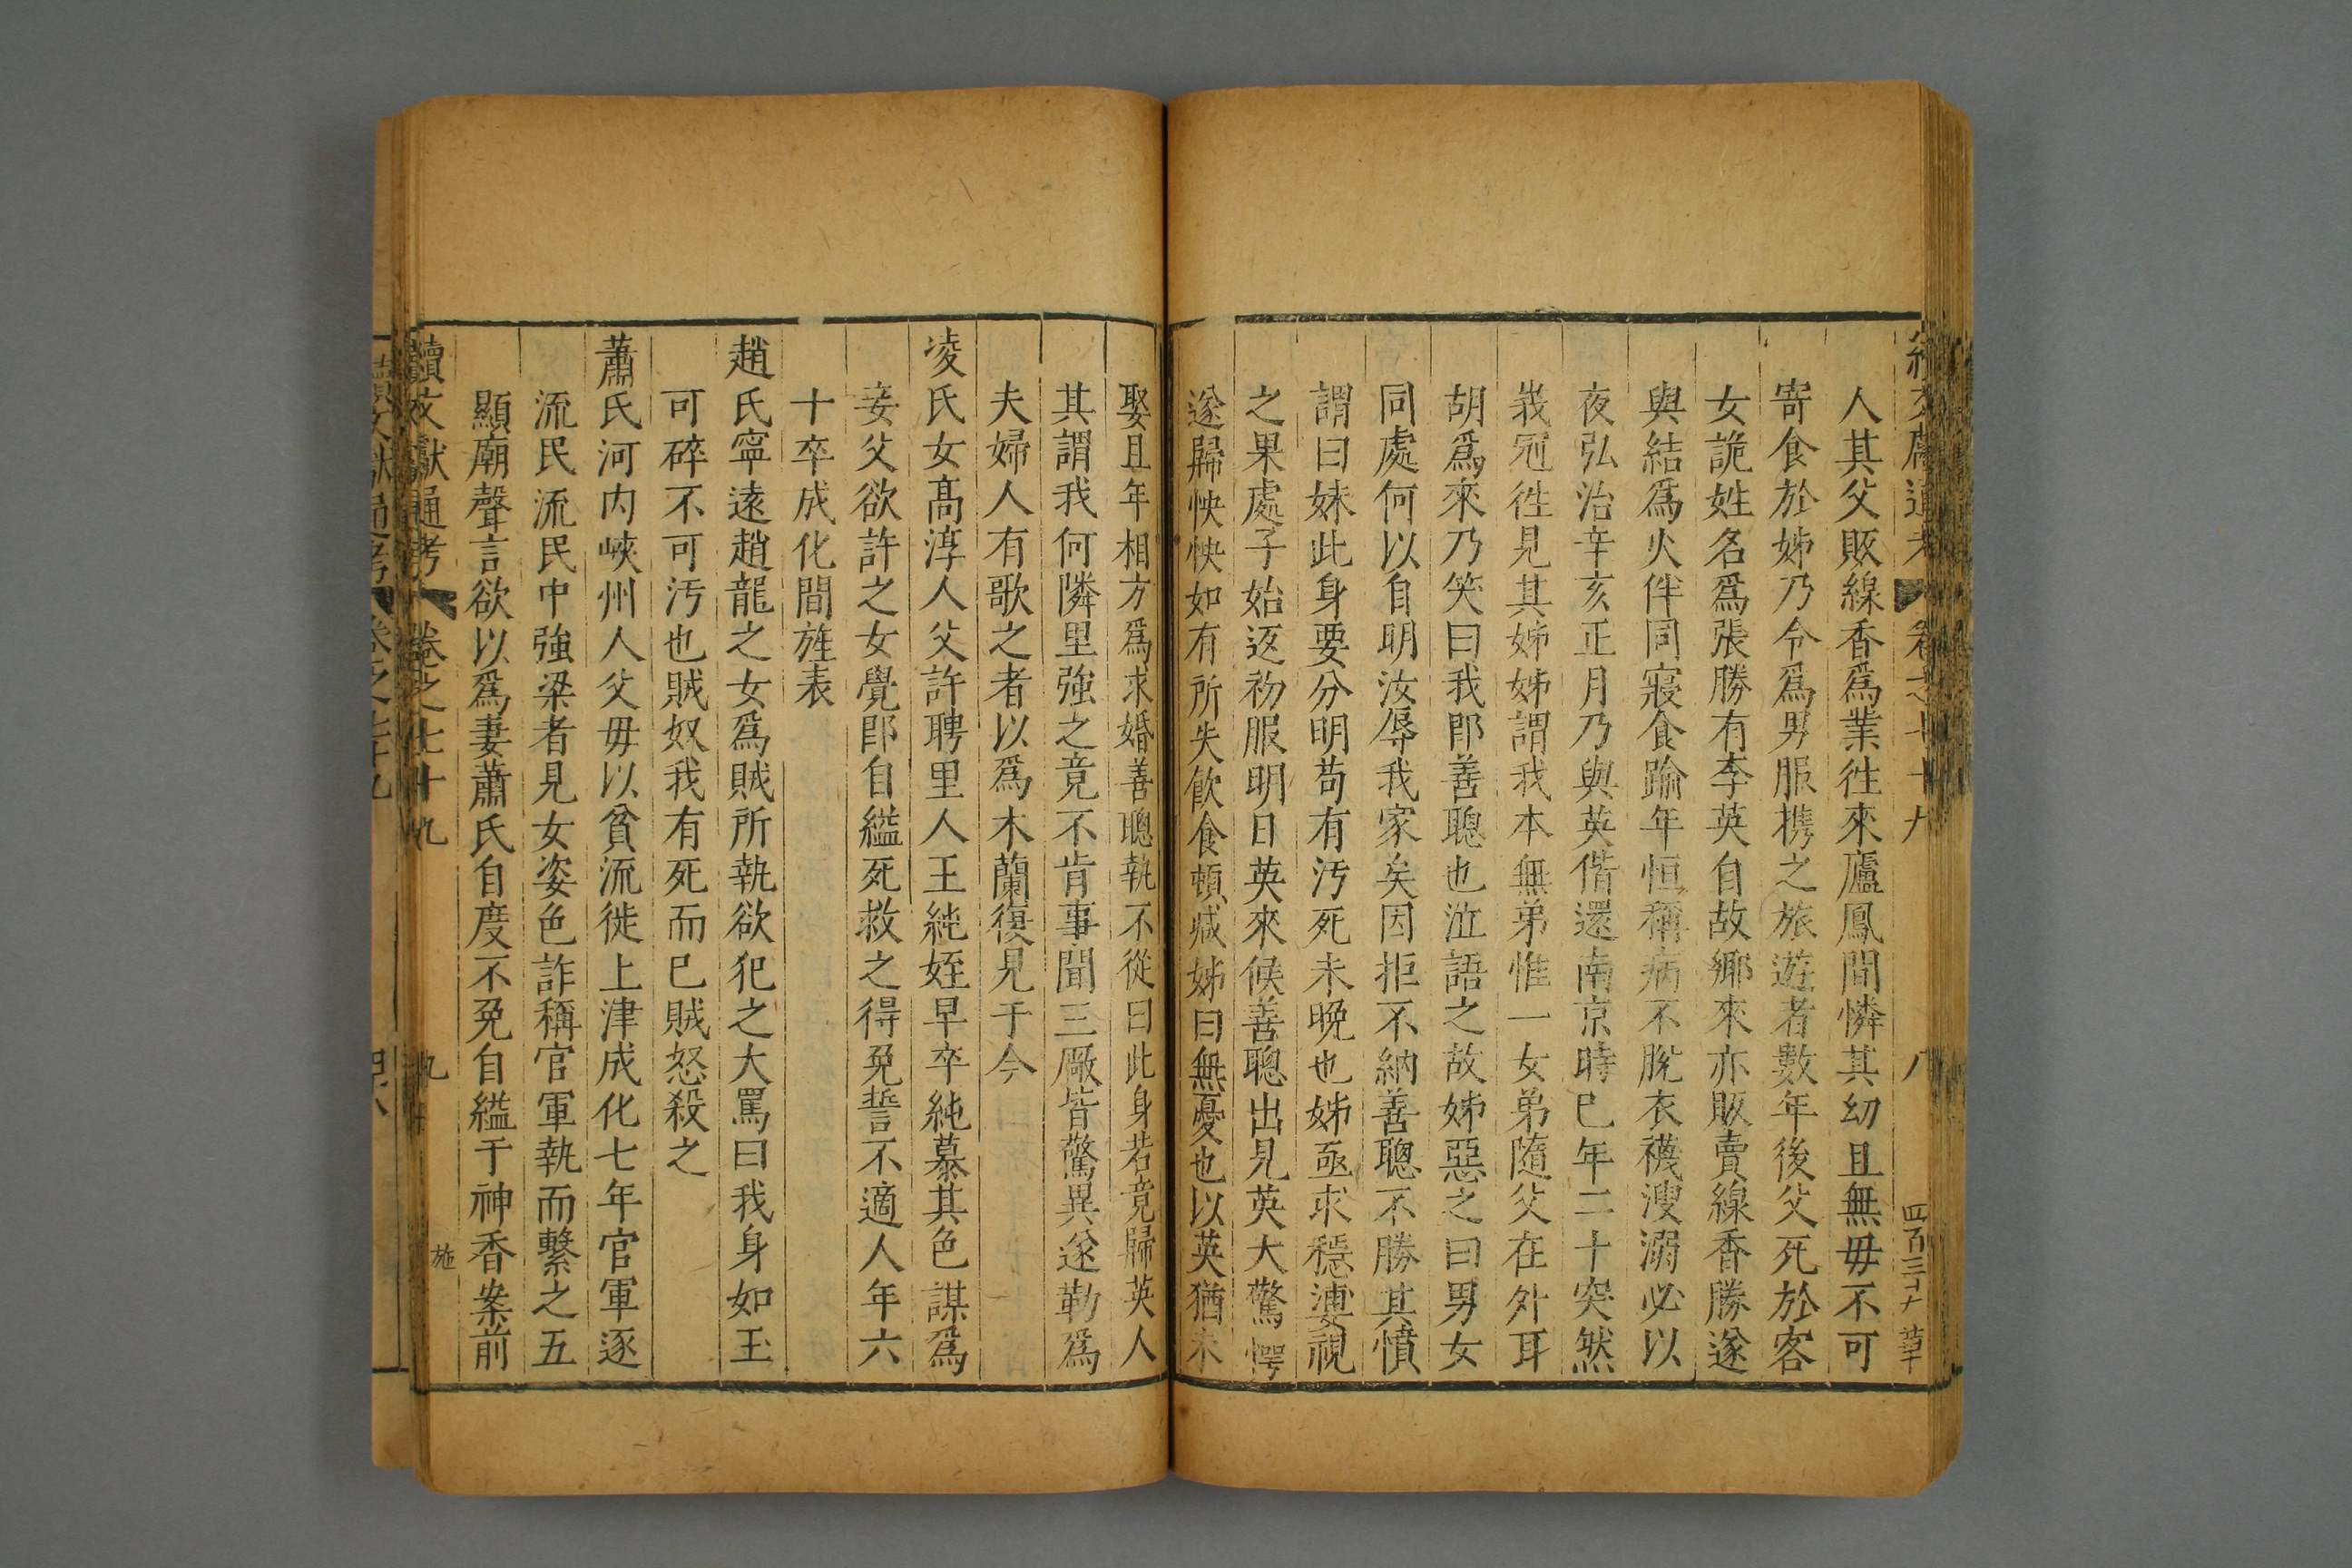 人其父販線香爲業徃來廬鳳間憐其幼且無毋不可
寄食於姊乃令爲男服携之旅遊者數年後父死於客
女詭姓名爲張勝有李英自故鄉來亦販賣線香勝遂
與結爲火伴同寢食踰年恒稱病不脫衣襪溲溺必以
夜弘治辛亥正月乃與英偕還南京時已年二十突然
峩冠徃見其姊姊謂我本無弟惟一女弟隨父在外耳
胡爲來乃笑曰我即善聰也泣語之故姊惡之曰男女
同處何以自明汝辱我家矣因拒不納善聰不勝其憤
謂曰妹此身要分明苟有汚死未晚也姊亟求穩婆視
之果處子始返初服明日英來候善聰出見英大驚愕
遂歸怏怏如有所失飲食頓減姊曰無憂也以英猶未
娶且年相方爲求婚善聰執不從曰此身若竟歸英人
其謂我何隣里強之竟不肯事聞三厰皆驚異遂勒爲
夫婦人有歌之者以爲木蘭復見于今
凌氏女高淳人父許聘里人王純姪早卒純慕其色謀爲
妾父欲許之女覺即自縊死救之得免誓不適人年六
十卒成化間旌表
趙氏寧遠趙龍之女爲賊所執欲犯之大罵曰我身如玉
可碎不可汚也賊奴我有死而已賊怒殺之
蕭氏河内峽州人父毋以貧流徙上津成化七年官軍逐
流民流民中強梁者見女姿色詐稱官軍執而繫之五
顯廟聲言欲以爲妻蕭氏自度不免自縊于神香案前
續文獻通考 卷之七十九 九 施